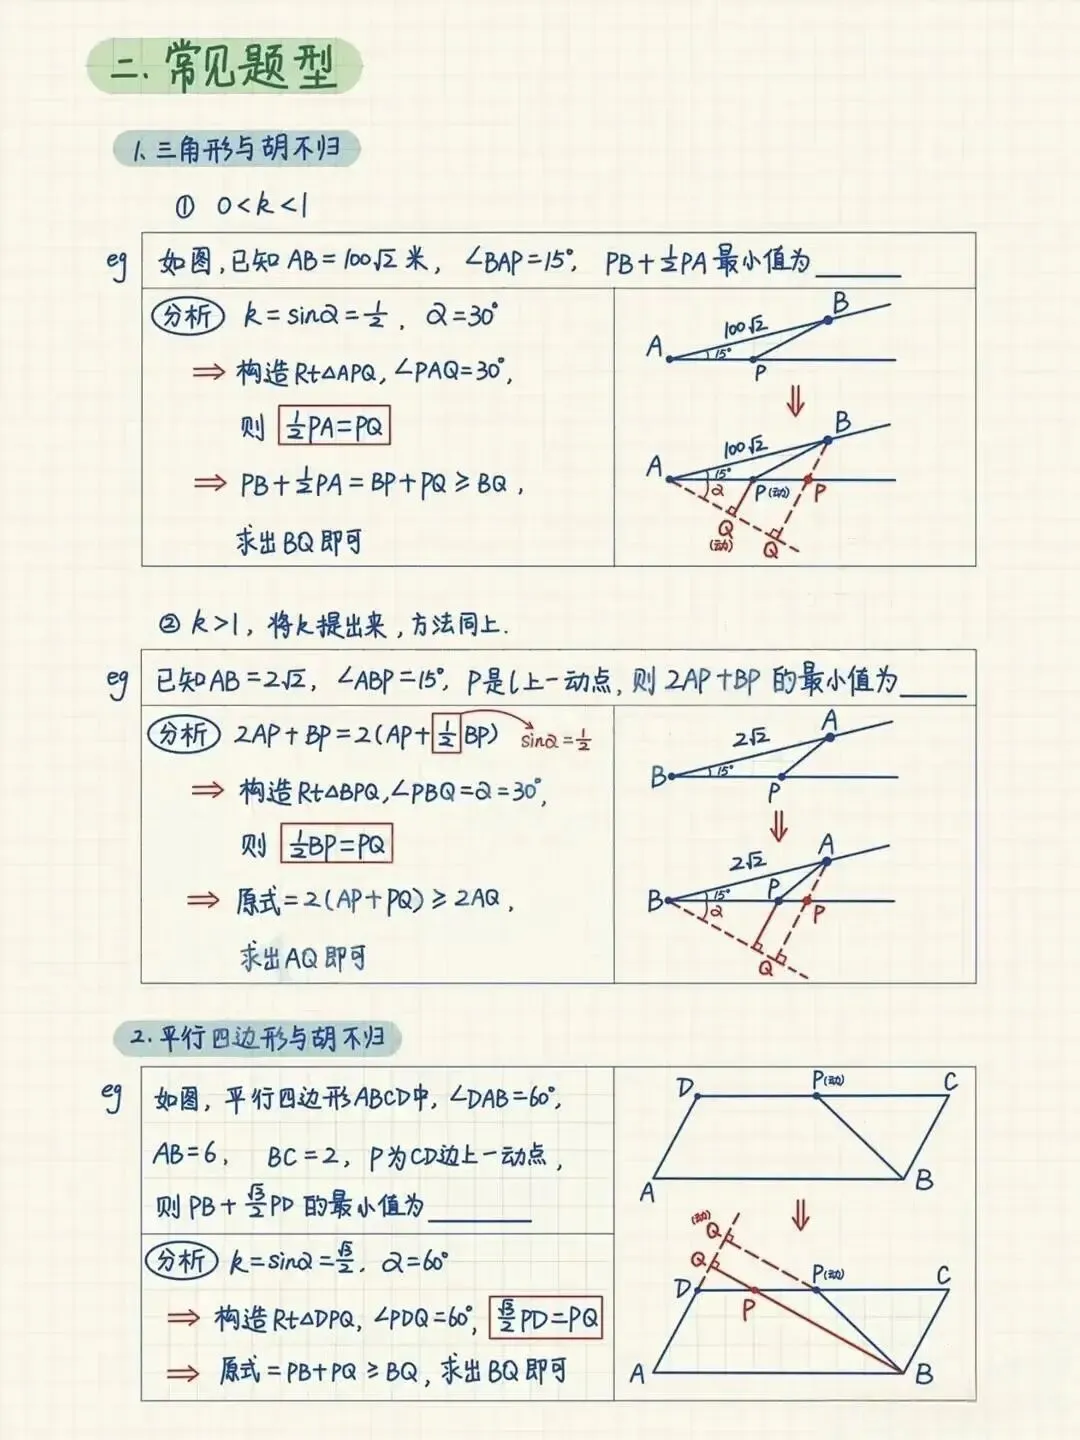 二、常见题型
1、三角形与胡不归
① 0<k<1
eg 如图,已知AB=100√2米, ∠BAP=15°, PB+½PA最小值为______
分析 k=sinα=½, α=30°
⇒ 构造Rt△APQ,∠PAQ=30°,
则 ½PA=PQ
⇒ PB+½PA=BP+PQ≥BQ,
求出BQ即可
B
100√2
A 15°
P
⇓
B
100√2
A 15°
α P(动) P
Q
(动) Q
② k>1, 将k提出来,方法同上.
eg 已知AB=2√2, ∠ABP=15°, P是l上一动点,则2AP+BP的最小值为______
分析 2AP+BP=2(AP+½BP) sinα=½
⇒ 构造Rt△BPQ,∠PBQ=α=30°,
则 ½BP=PQ
⇒ 原式=2(AP+PQ)≥2AQ,
求出AQ即可
A
2√2
B 15°
P
⇓
A
2√2
P
B 15°
α P
Q
2.平行四边形与胡不归
eg 如图, 平行四边形ABCD中, ∠DAB=60°,
AB=6, BC=2, P为CD边上一动点,
则PB+√3/2PD的最小值为______
分析 k=sinα=√3/2, α=60°
⇒ 构造Rt△DPQ, ∠PDQ=60°, √3/2PD=PQ
⇒ 原式=PB+PQ≥BQ,求出BQ即可
D P(动) C
A B
⇓
(动)
Q
Q
D P(动) C
P
A B